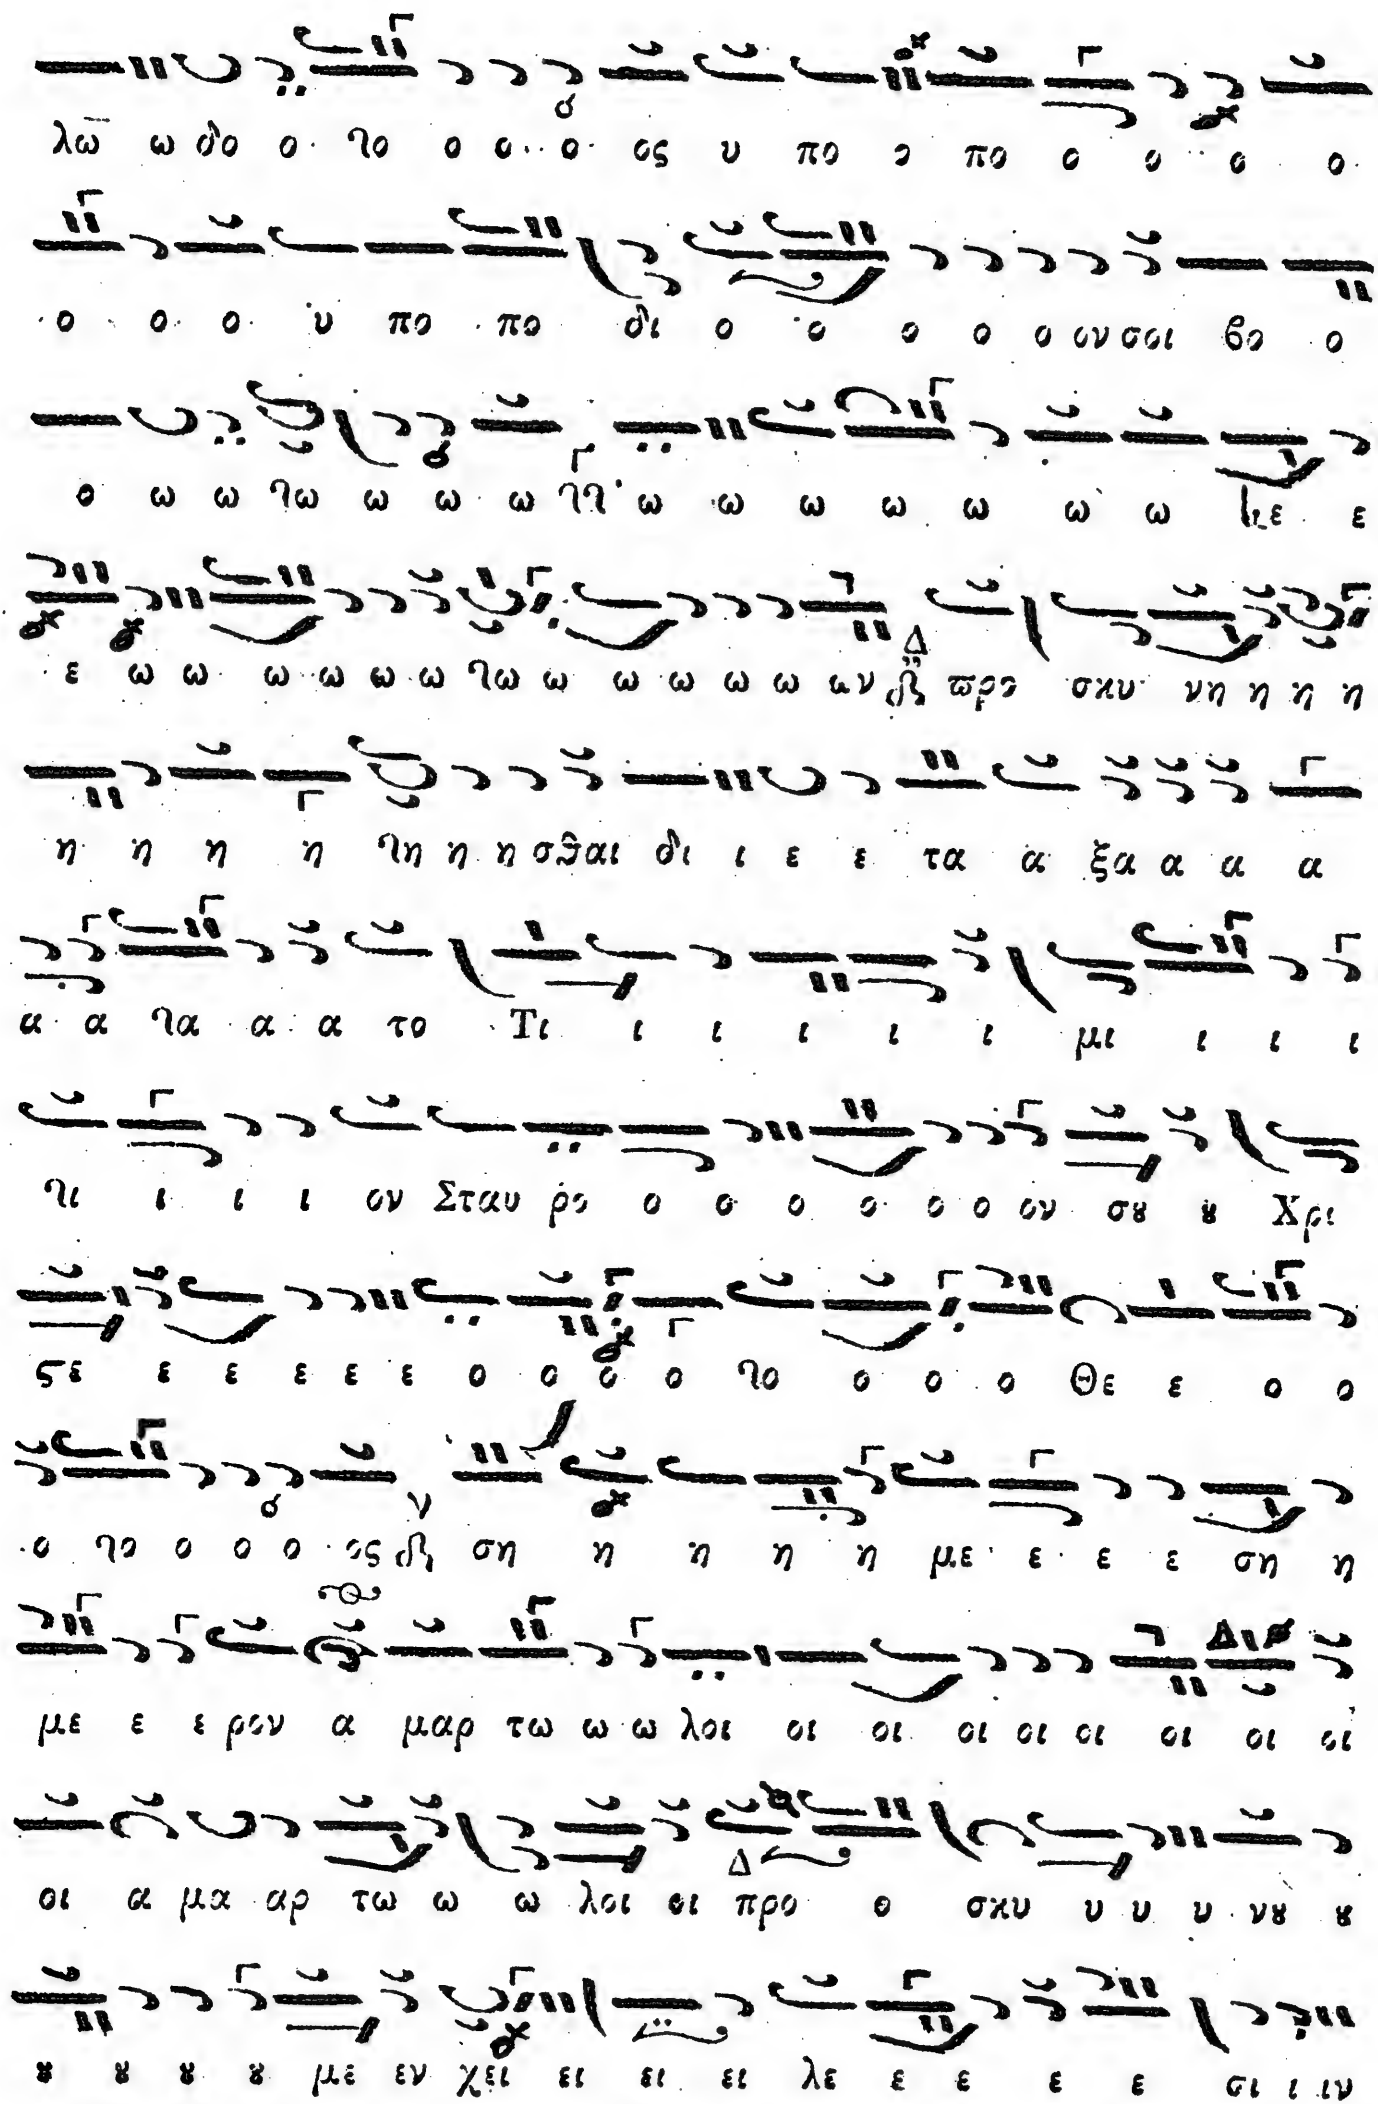 λω ω δο ο το ο ο ο ος υ πο ο πο ο ο ο ο
ο ο ο υ πο πο δι ο ο ο ο ο ον σοι βο ο
ο ω ω τω ω ω ω ω ω ω ω ω ω ω κε ε
ε ω ω ω ω ω ω τω ω ω ω ω ω ων προ σκυ νη η η η
η η η η τη η η η σθαι δι ι ε ε τα α ξα α α α
α α τα α α το Τι ι ι ι ι ι μι ι ι ι
τι ι ι ι ον Σταυ ρο ο ο ο ο ο ο ον σȣ ȣ Χρι
ϛε ε ε ε ε ε ο ο ο ο το ο ο ο Θε ε ο ο
ο το ο ο ο ος ση η η η η με ε ε ε ση η
με ε ε ρον α μαρ τω ω ω λοι οι οι οι οι οι οι οι οι
οι α μα αρ τω ω ω λοι οι προ ο σκυ υ υ υ νȣ ȣ
ȣ ȣ ȣ ȣ με εν χει ει ει ει λε ε ε ε ε σι ι ιν